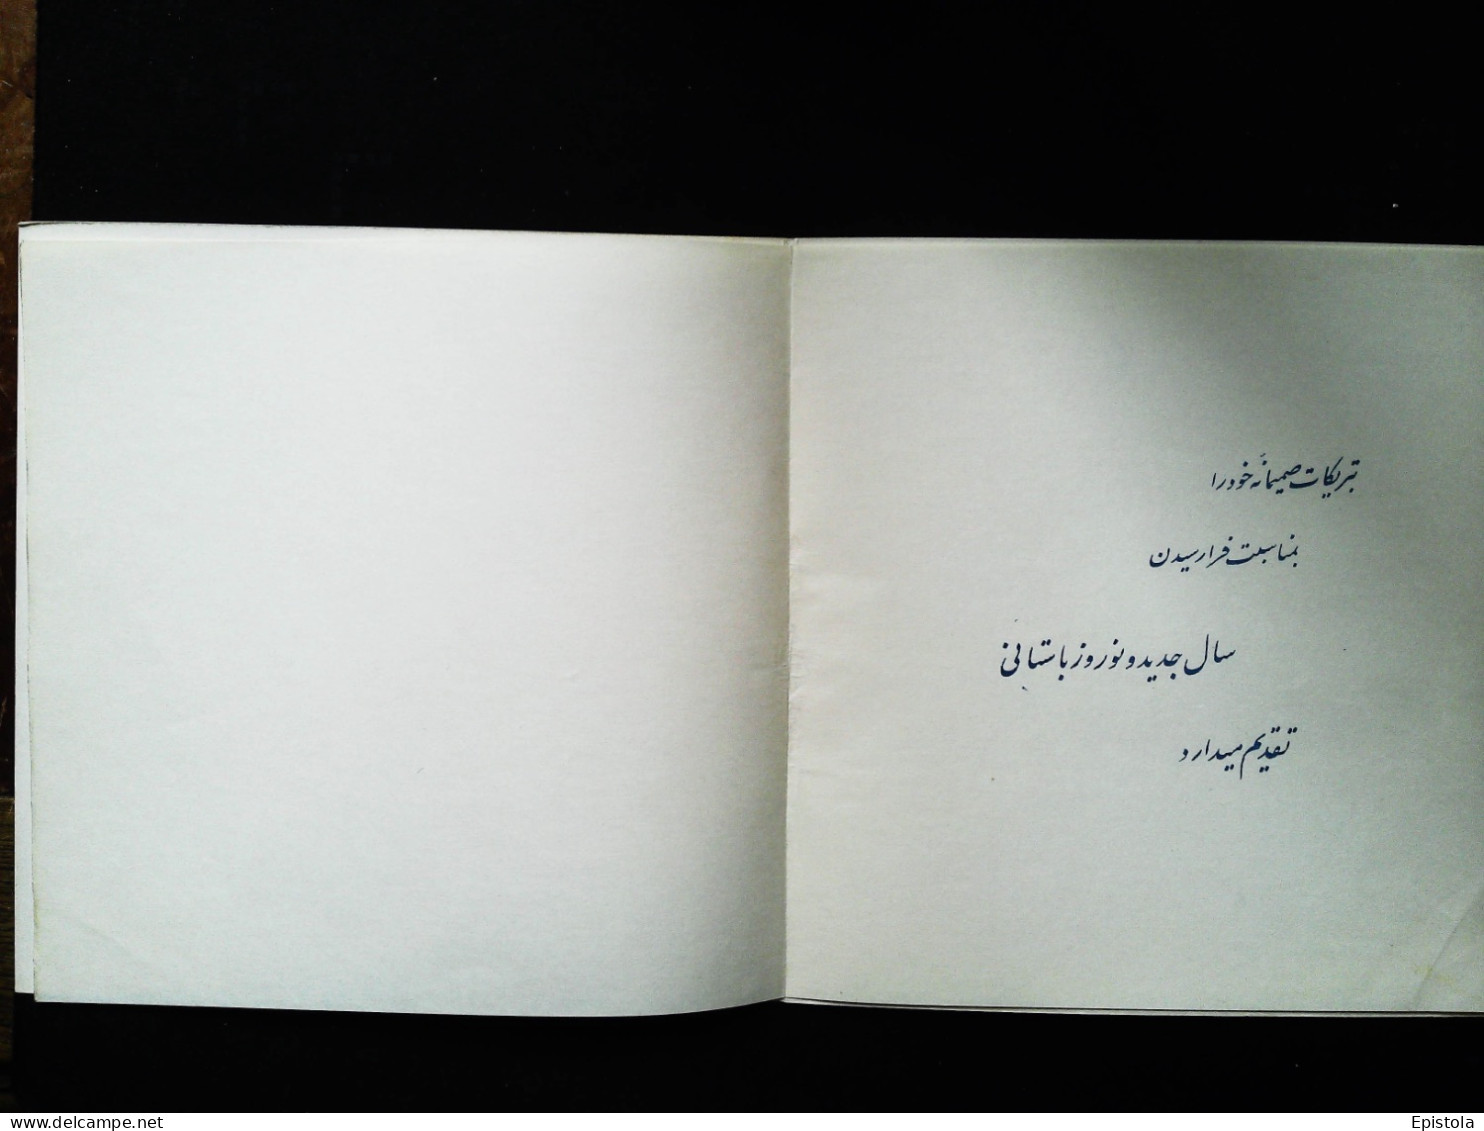 تبریکات صمیمانهٔ خود را
بمناسبت فرا رسیدن
سال جدید و نوروز باستانی
تقدیم میدارد
www.delcampe.net
Epistola